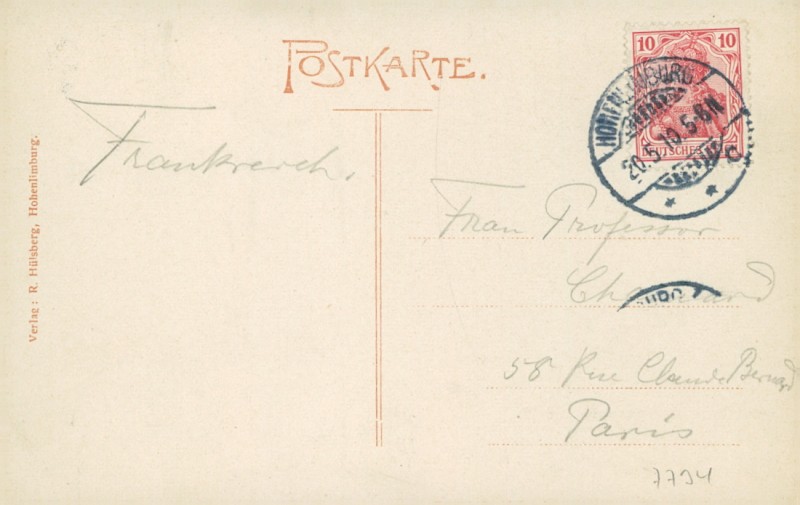 POSTKARTE.
10 10
DEUTSCHES
HOHENLIMBURG
20.5.10.5-6N
C
Frankreich.
Frau Professor
58 Rue Claude Bernard
Paris
7794
Verlag: R. Hülsberg, Hohenlimburg.